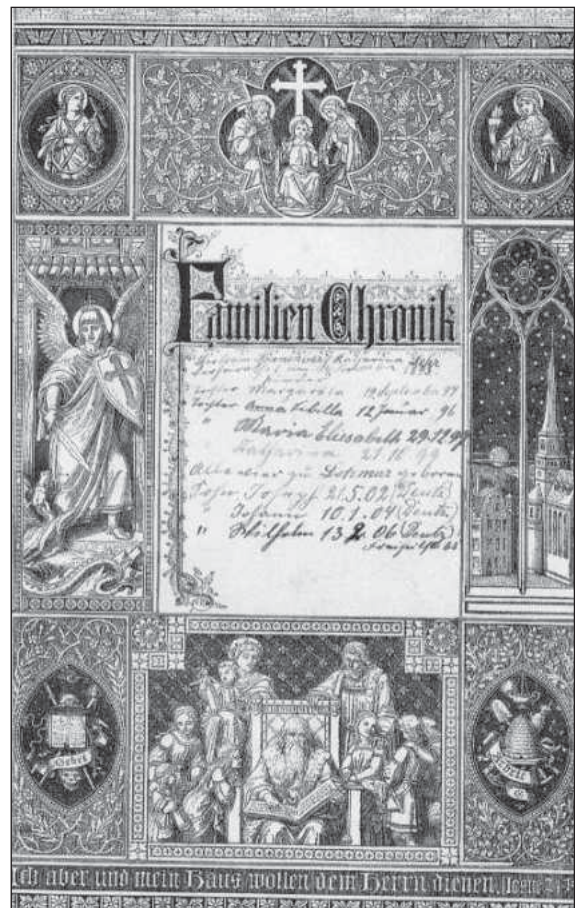 Familien Chronik
Katharina
Kinder
Tochter Margareta 19 September 94
Tochter Anna Sibilla 12 Januar 96
" Maria Eliesabeth 29.12.97
Katharina 21.10.99
Alle vier zu Lohmar geboren
Sohn Joseph 21.5.02 (Deutz)
" Johann 10.1.04 (Deutz)
" Wilhelm 13 2 06 (Deutz)
Gebet
Arbeit
Ich aber und mein Haus wollen dem Herrn dienen.